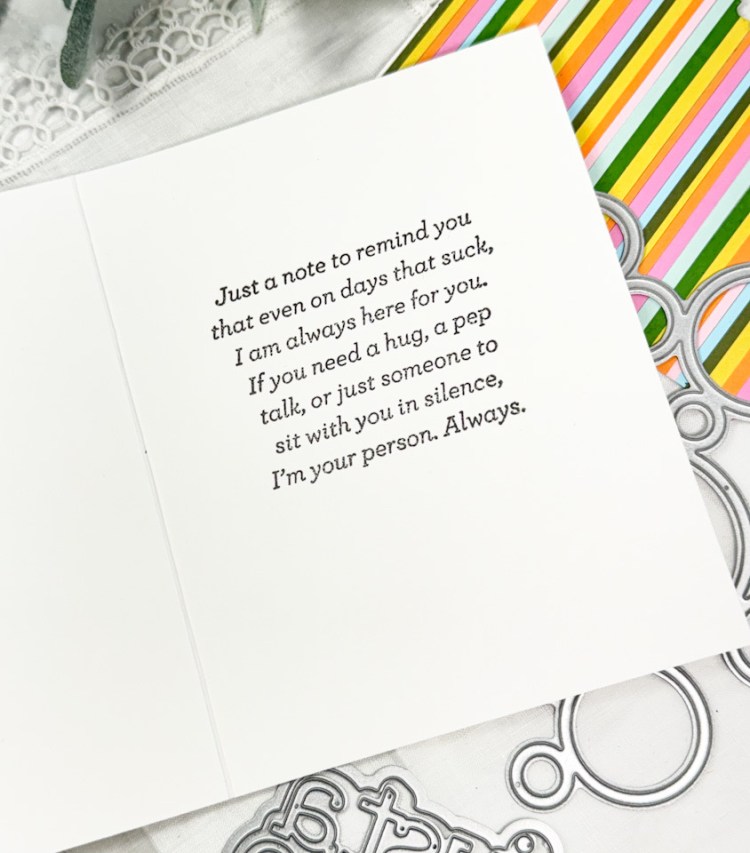 Just a note to remind you
that even on days that suck,
I am always here for you.
If you need a hug, a pep
talk, or just someone to
sit with you in silence,
I'm your person. Always.